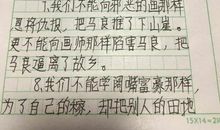 7.我们不能向邪恶的画那样
恩将仇报，把马良推了下山崖。
更不能向画师那样陷害马良，把
马良逼离了故乡。
8.我们不能学闲嘴富豪那样，
为了自己的梯，却把别人的田地
15×14=2